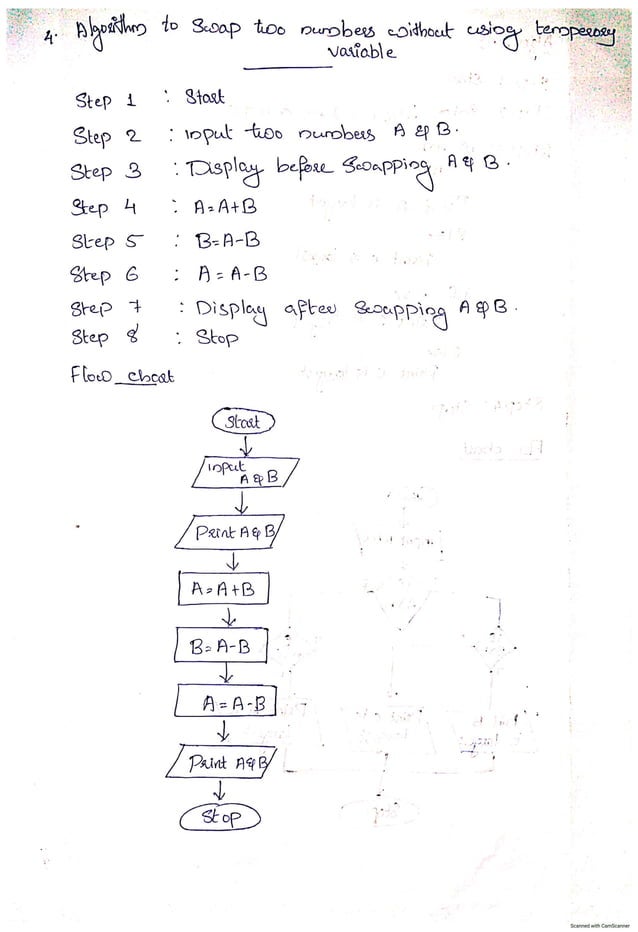 4. Algorithm to Swap two numbers without using temperory
variable
Step 1 : Start
Step 2 : input two numbers A & B.
Step 3 : Display before Swapping A & B.
Step 4 : A=A+B
Step 5 : B=A-B
Step 6 : A=A-B
Step 7 : Display after Swapping A & B.
Step 8 : Stop
Flow chart
Start
input
A & B
Print A & B
A=A+B
B=A-B
A=A-B
Print A & B
Stop
Scanned with CamScanner